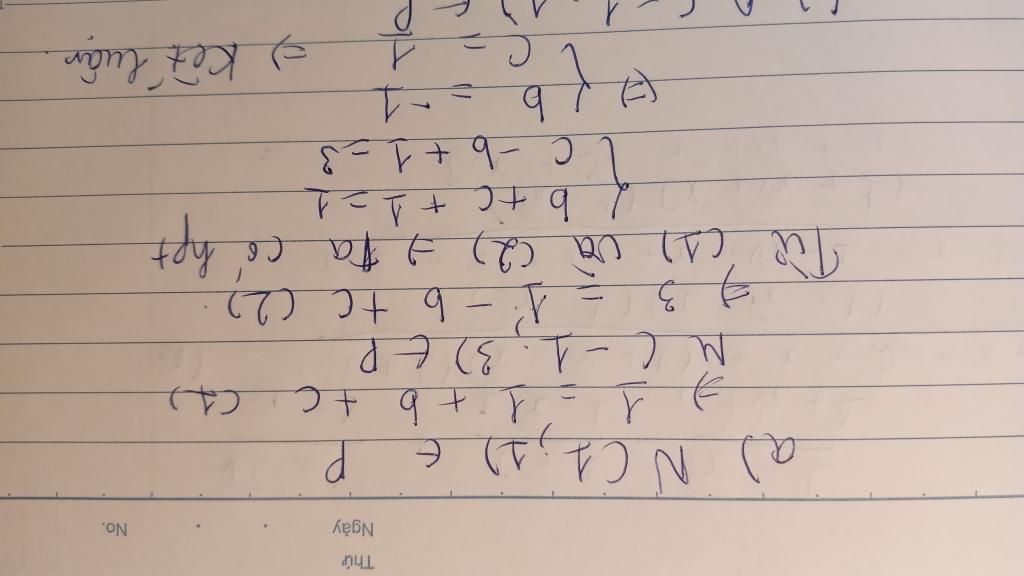 Thứ
Ngày No.
a) N (1; 1) ∈ P
=> 1 = 1 + b + c (1)
M (-1; 3) ∈ P
=> 3 = 1 - b + c (2)
Từ (1) và (2) => Ta có hpt
{ b + c + 1 = 1
{ c - b + 1 = 3
(=) { b = -1
{ c = 1 => Kết luận.